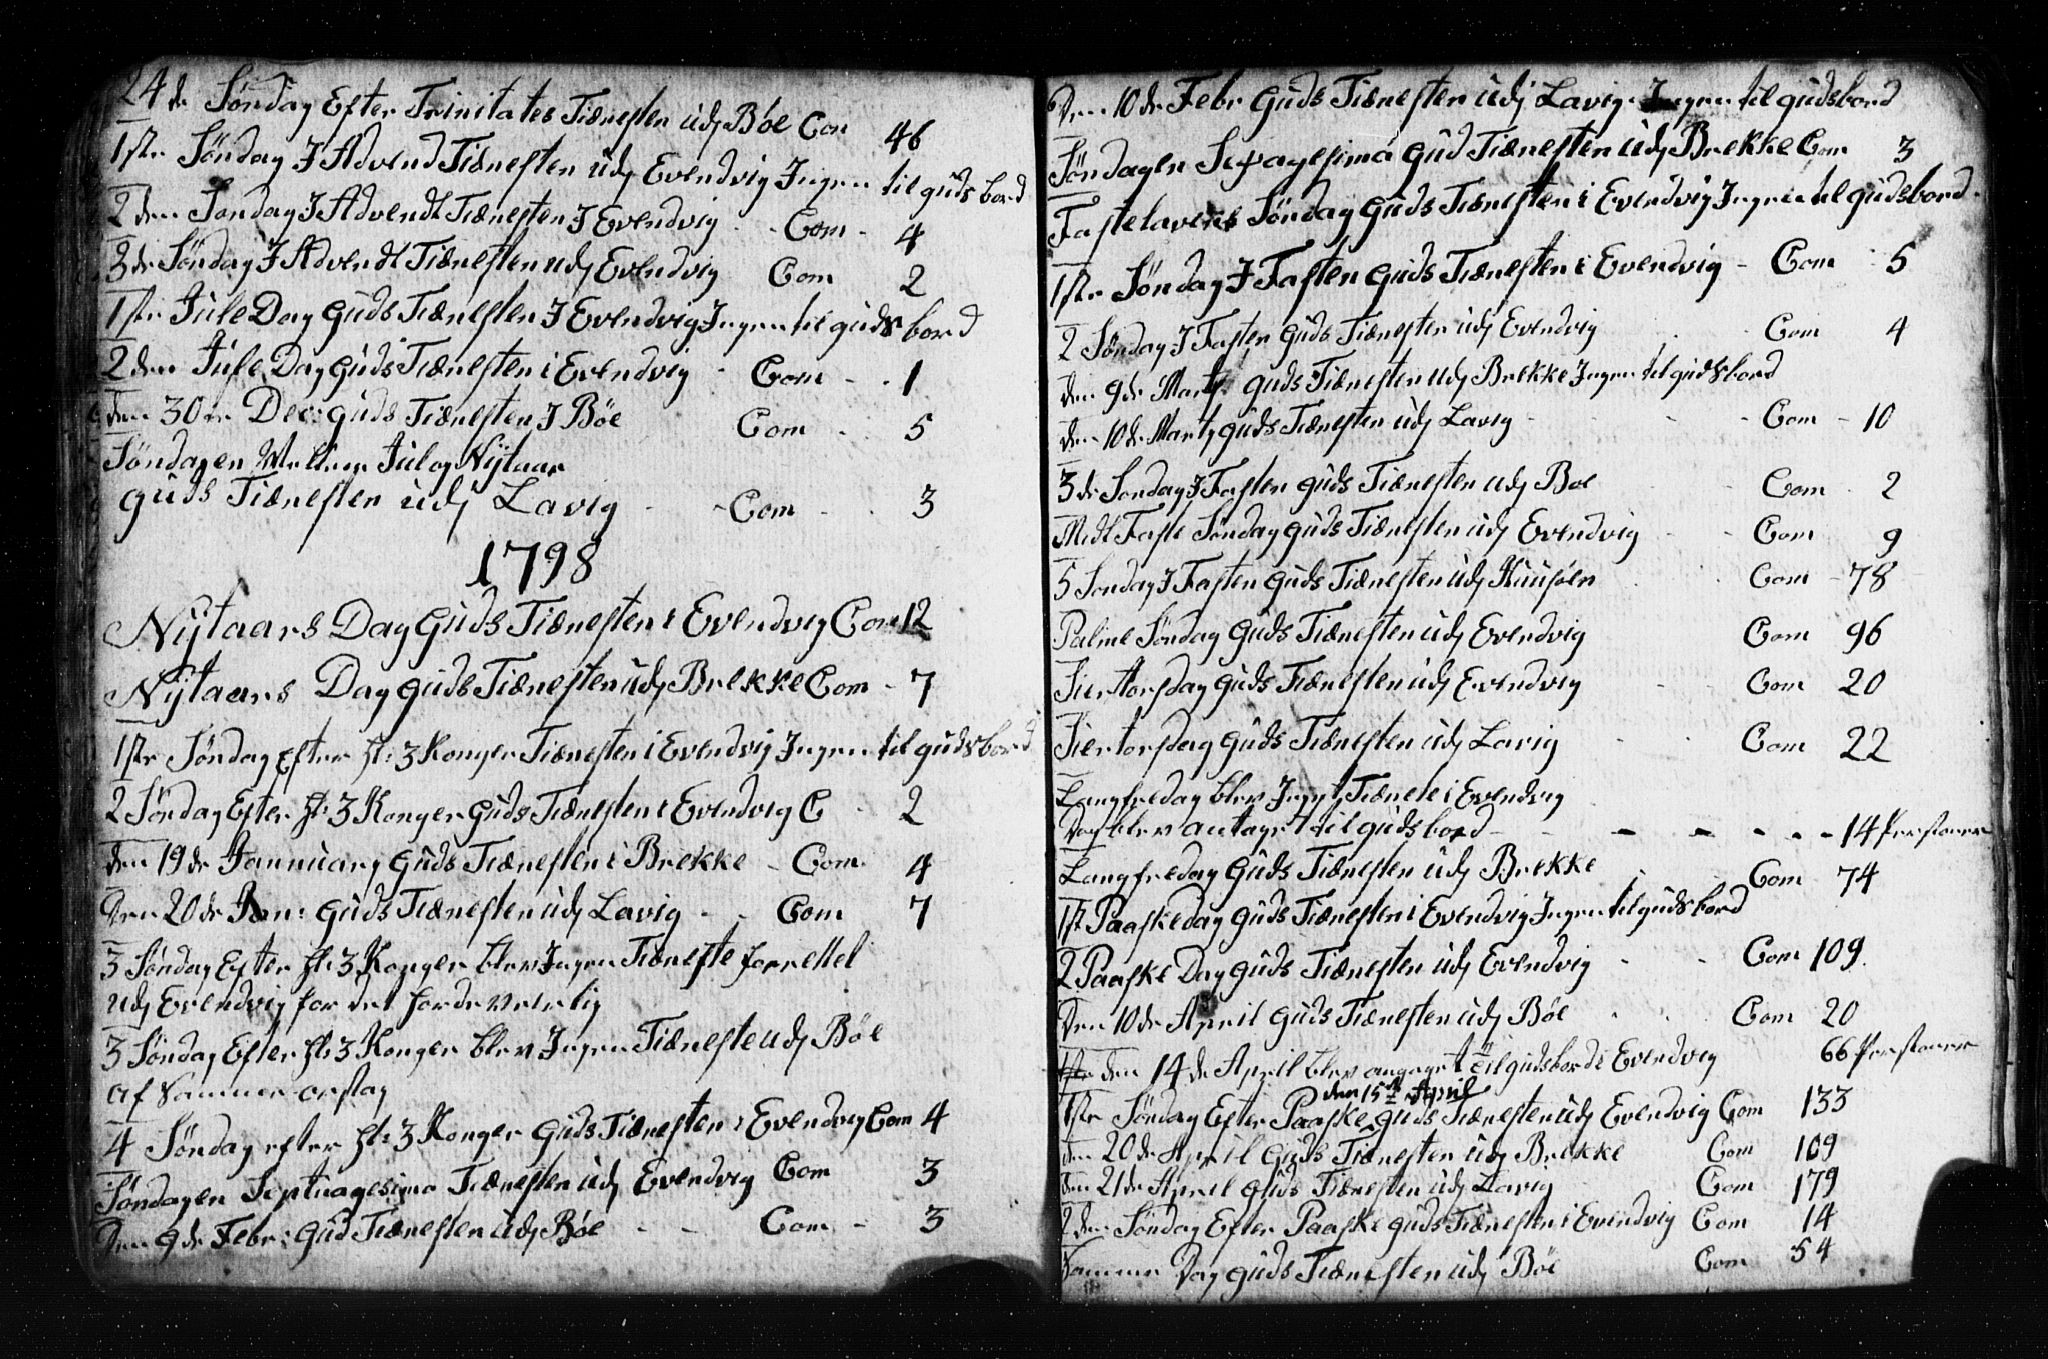 24de Søndag Efter Trinitates Tiænesten udj Bøe Com 46
1ste Søndag J Advend Tiænesten udj Evendvig Jngen til guds bord
2den Søndag J Advendt Tiænesten J Evendvig - - Com - 4
3de Søndag J Advendt Tiænesten udj Evendvig Com 2
1ste Jule Dag Guds Tiænesten J Evendvig Jngen til guds bord
2den Jule Dag Guds Tiænesten i Evendvig - Com - - 1
den 30te Dec: guds Tiænesten J Bøe Com - 5
Søndagen Mellem Jul og Nÿtaar
guds Tiænesten udj Lavig - - Com - - 3
1798
Nÿtaars Dag Guds Tiænesten i Evendvig Com 12
Nÿtaars Dag guds Tiænesten udj Brekke Com - 7
1ste Søndag Efter hl: 3 Konger Tiænesten i Evendvig Jngen til guds bord
2 Søndag Efter hl: 3 Konger Guds Tiænesten i Evendvig C - 2
den 19de Jannuarj Guds Tiænesten i Brekke - Com 4
Den 20de Jan: Guds Tiænesten udj Lavig - - Com 7
3 Søndag Efter hl: 3 Konger blev Jngen Tiæneste forrettet
udj Evendvig for det
3 Søndag Efter hl: 3 Konger blev Jngen Tiæneste udj Bøe
af Samme orsag
4 Søndag efter hl: 3 Konger Guds Tiænesten i Evendvig Com 4
Søndagen Septuagesima Tiænesten udj Evendvig Com 3
Den 9de Febr: Gud Tiænesten udj Bøe - - Com - 3
Den 10de Febr Guds Tiænesten udj Lavig Jngen til gudsbord
Søndagen Sexagesima Gud Tiænesten udj Brekke Com 3
Fastelavens Søndag Guds Tiænesten i Evendvig Jngen til gudsbord
1ste Søndag J Fasten Guds Tiænesten i Evendvig - Com - 5
2 Søndag J Fasten Guds Tiænesten udj Evendvig Com 4
den 9de Martj guds Tiænesten udj Brekke Jngen til gudsbord
den 10de Martj Guds Tiænesten udj Lavig - - - Com - 10
3de Søndag J Fasten guds Tiænesten udj Boe Com - 2
Midt Faste Søndag Guds Tiænesten udj Evendvig - - Com 9
5 Søndag J Fasten Guds Tiænesten udj Huusøen Com - 78
Palme Søndag Guds Tiænesten udj Evendvig Com 96
Siertorsdag Guds Tiænesten udj Evendvig - - Com 20
Siertorsdag Guds Tiænesten udj Lavig - - Com 22
Langfredag blev Jngen Tiæneste i Evendvig
Dog blev antaget til gudsbord - - - - - - 14 Personer
Langfredag Guds Tiænesten udj Brekke - Com 74
1ste Paaskedag Guds Tiænesten i Evendvig Jngen til guds bord
2 Paaske Dag Guds Tiænesten udj Evendvig - - Com 109
Den 10de April Guds Tiænesten udj Bøe - - Com 20
1ste den 14de April blev antaget til gudsbord i Evendvig 66 Personer
den 15de April
1ste Søndag Efter Paaske Guds Tiænesten udj Evendvig Com 133
den 20de April Guds Tiænesten udj Brekke Com 109
den 21de April Guds Tiænesten udj Lavig - Com 179
2den Søndag Efter Paaske guds Tiænesten i Evendvig Com 14
Samme Dag Guds Tiænesten udj Bøe Com 54